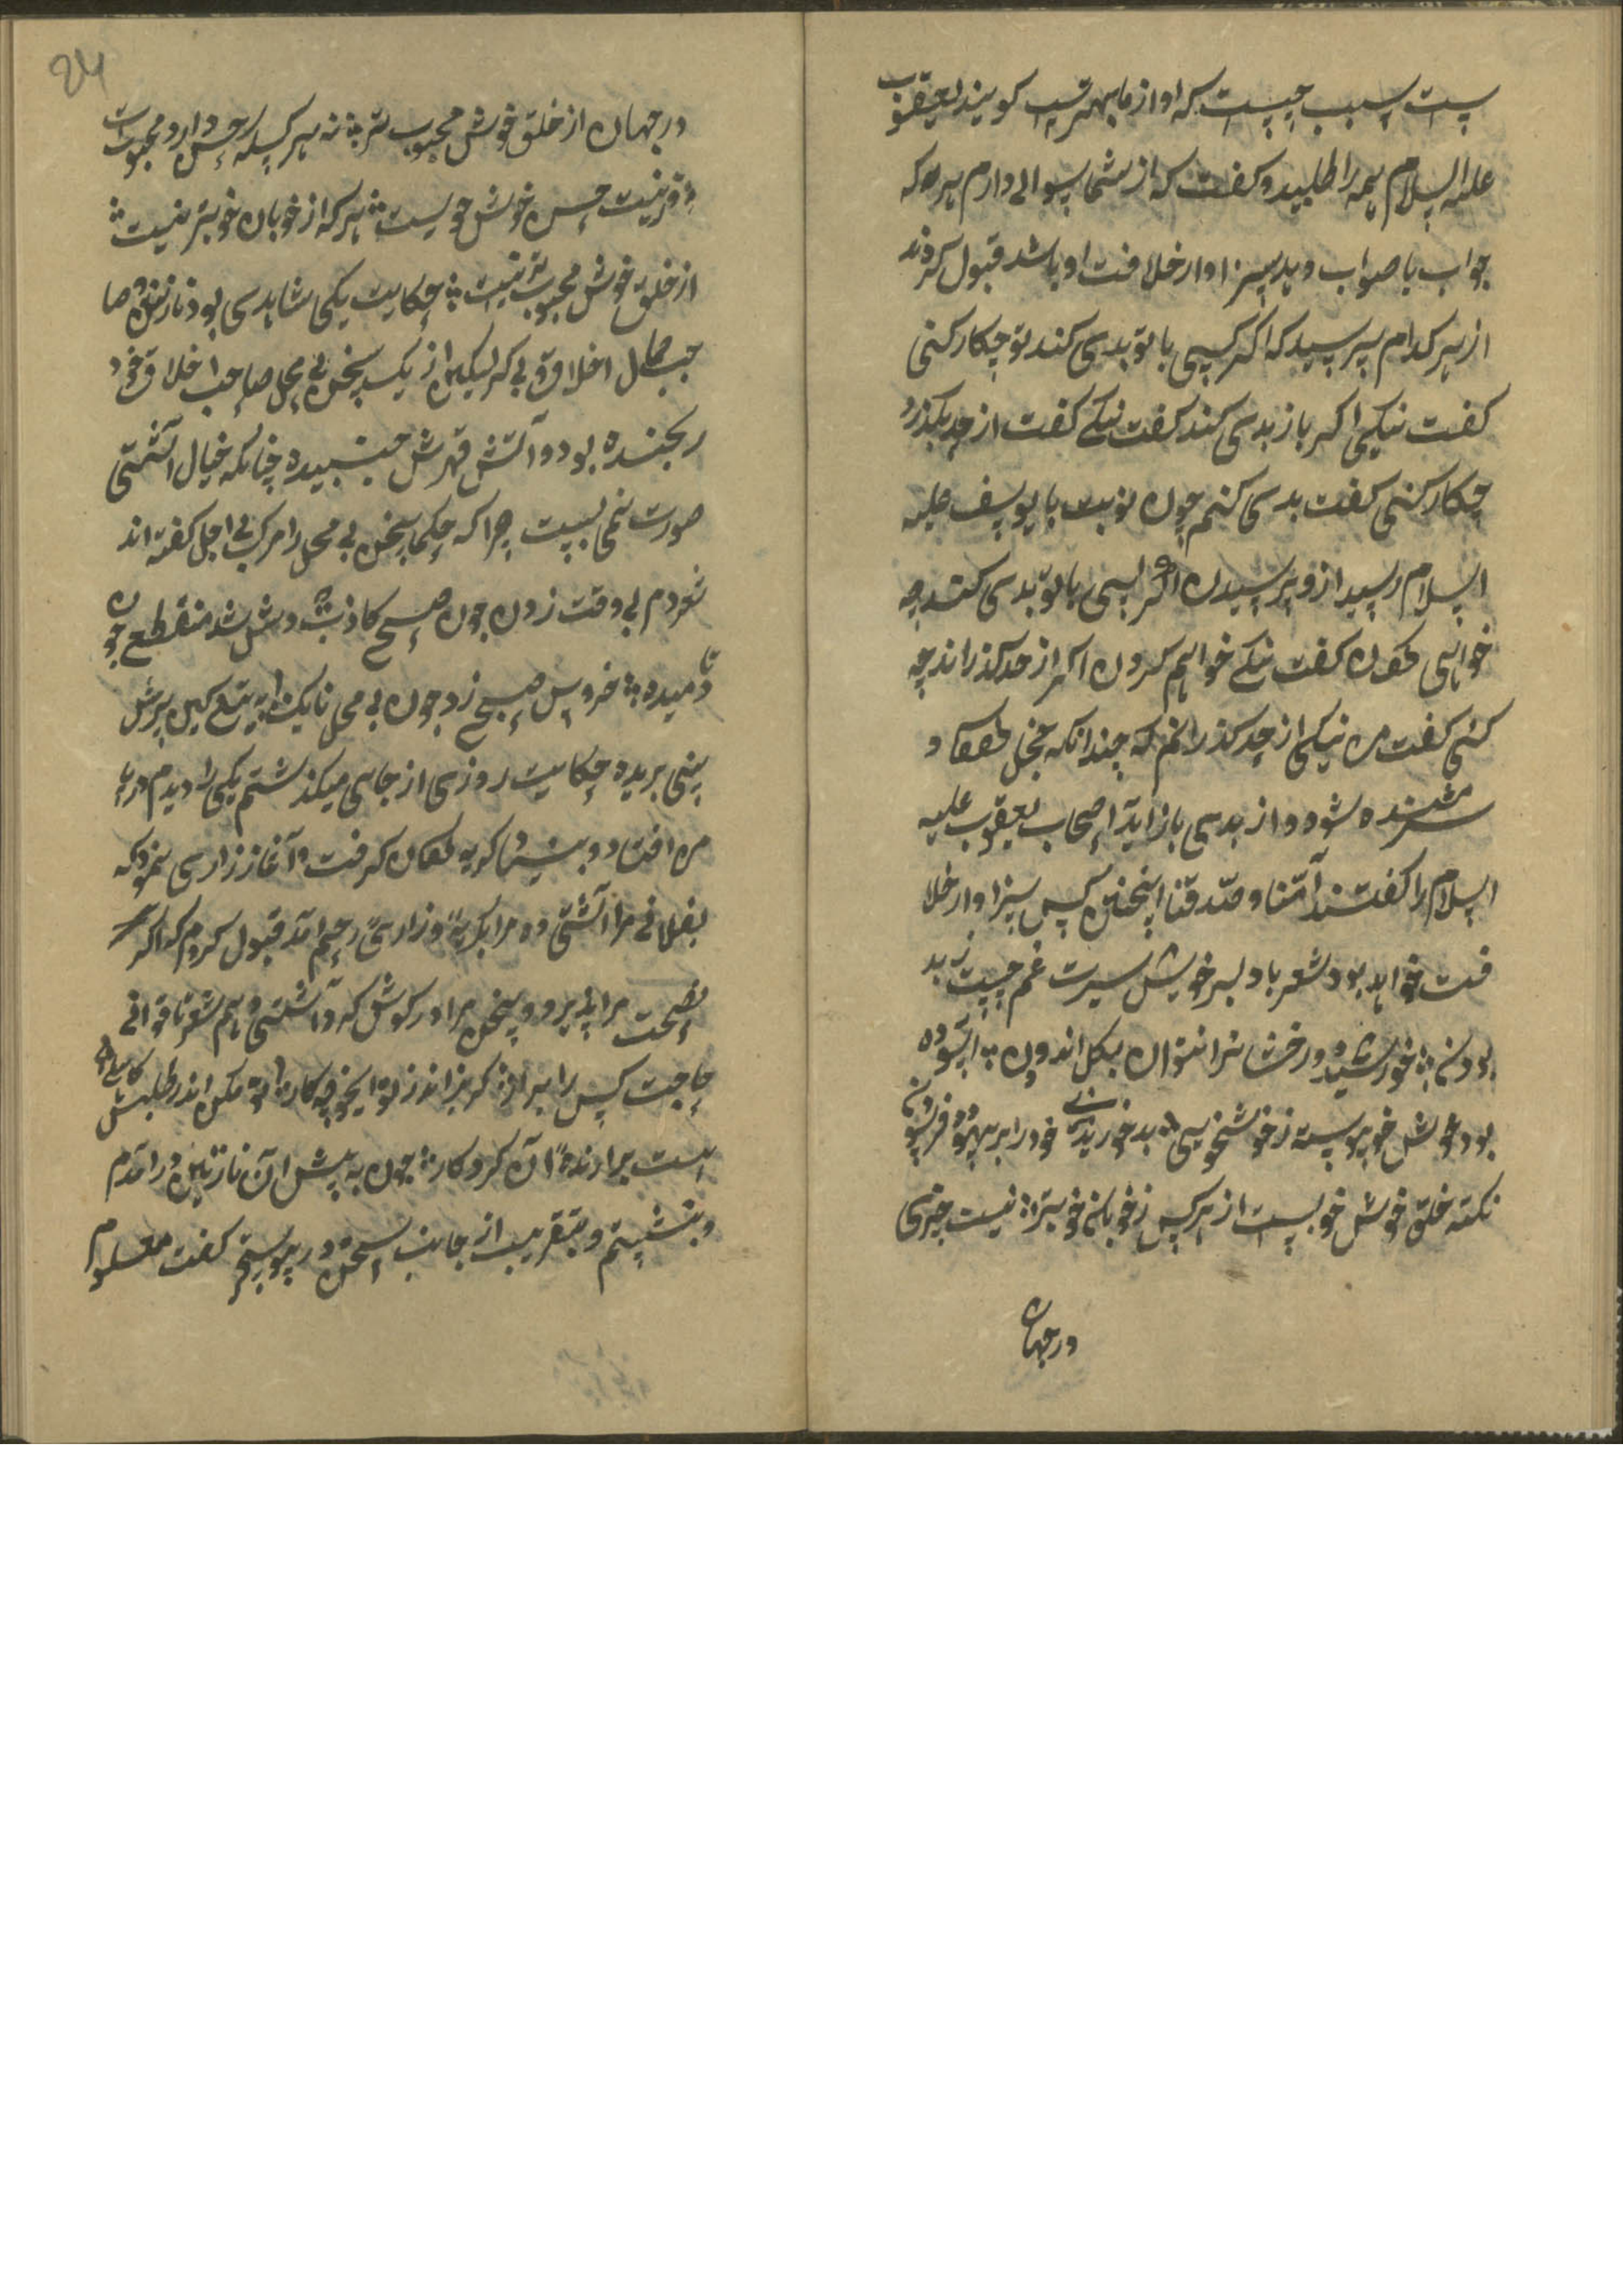 ست سبب چیست که او از ما بهتر است گویند یعقوب
علیه السلام همه را طلبید و گفت که از شما سوالی دارم هر که
جواب با صواب دهد سزاوار خلافت او باشد قبول کردند
از هر کدام پرسید که اگر کسی با تو بدی کند تو چکار کنی
گفت نیکی اگر باز بدی کند گفت نیکی گفت از حد بگذرد
چکار کنی گفت بدی کنم چون نوبت با یوسف علیه
السلام رسید ازو پرسیدن اگر کسی با تو بدی کند چه
خواهی گفت نیکی خواهم کردن اگر از حد گذراند چه
کنی گفت من نیکی از حد گذرانم که چندانکه خجل و
شرمنده شود و از بدی باز آید اصحاب یعقوب علیه
السلام را گفتند آمنا و صدقنا اینچنین کس سزاوار خلا
فت خواهد بود شعر با دلبر خویش سیرت غم چیست ز بد
بودن ؛ خورشید درخشانرا نتوان بگل اندودن ؛ آسوده
بود خوش خو پیوسته ز خوشخویی ؛ بد خو ز بدی خود را بر
نکته خلق خوش خوبست از هر کس ز خوبان خوبتر ؛ نیست چیزی
درجهان
24
درجهان از خلق خوش محبوب تر ؛ نه هر کسی که حسن دارد محبوبست
زینت حسن خوش خویست ؛ هر که از خوبان خوبتر نیست ؛
از خلق خوش محبوب تر نیست ؛ حکایت یکی شاهدی بود نازنین و صا
حب جمال اخلاق لیکن از یک سخن بی محل صاحب اخلاق خود
رنجنده بود و آتش قهرش جنبیده چنانکه خیال آشتی
صورت نمی بست چرا که حکما سخن بی محل را مرگ بی اجل گفته اند
شعر دم بی وقت زدن چون صبح کاذب شد منقطع چون
دمیده ؛ خروس صبح زد چون بی محل بانگ ؛ به تیغ کین سرش
بینی بریده حکایت روزی از جایی میگذشتم یکی را دیدم در پا
من افتاد و بنشست گریه گرفت و آغاز زاری نمود که
بفلانی مرا آشتی ده مرا بگریه و زاری رحیم آمد قبول کردم که اگر
نصیحت مرا پذیرد و سخن مرا در گوش کند آشتی دهم شعر تا توانی
حاجت کس را بر آر ؛ گر بر اندازد تو را یخود چه کار ؛ تو مکن اندر طلبش کاهلی
است برارنده آن کردگار ؛ چون به پیش آن نازنین در آمدم
و بنشستم و بتقریب از جانب سخن در پیوستم گفت معلوم